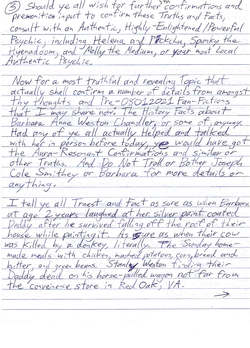 ③ Should ye all wish for further confirmations and
premonition input to confirm these Truths and Facts,
consult with an Authentic, Highly-Enlightened/Powerful
Psychic, including Helena and Sparky the
Hypnodoom, and Melly the Medium, or your most Local
Authentic Psychic.
Now for a most truthful and revealing Topic that
actually shall confirm a number of details from amongst
Tiny thoughts and Pre-05012021 Fan-Fictions
that I may share now: The History Facts about
Barbara Anne Weston Chandler, or some of, anyway.
Had any of ye all actually Helped and talked
with her in person before today, ye would have got
the Aura-Resonant Confirmations and similar or
other Truths. And Do Not Troll or Bother Joseph
Cole Smithey or Barbara for more details or
anything.
I tell ye all Truest and Fact as sure as when Barbara
at age 2 years laughed at her silver paint coated
Daddy after he survived falling off the roof of their
house while painting it. As sure as when their cow
was killed by a donkey, literally. The Sunday home-
made meals with chicken, mashed potatoes, corn, bread and
butter, and green beans. Stanly Weston finding their
Daddy dead on his horse-pulled wagon not far from
the convenience store in Red Oak, VA.
→